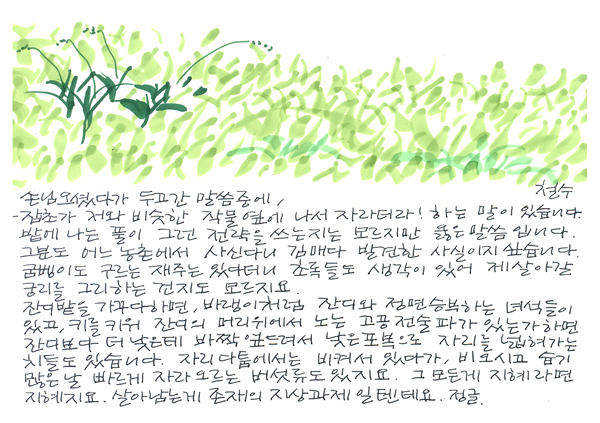 철수
손님오셨다가 두고간 말씀중에,
-잡초가 저와 비슷한 작물옆에 나서 자라더라! 하는 말이 있습니다.
밭에 나는 풀이 그런 전략을 쓰는지는 모르지만 옳은 말씀입니다.
그분도 어느 농촌에서 사신다니 김매다 발견한 사실이지 싶습니다.
굼벵이도 구르는 재주는 있다더니 초록들도 생각이 있어 제살아갈
궁리를 그리하는 건지도 모르지요.
잔디밭을 가꾸다하면, 바랭이처럼 잔디와 정면승부하는 녀석들이
있고, 키를 키워 잔디의 머리위에서 노는 고공전술파가 있는가하면
잔디보다 더 낮은데 바짝 엎드려서 낮은포복으로 자리를 넓혀가는
치들도 있습니다. 자리다툼에서는 비켜서 있다가, 비오시고 습기
많은날 빠르게 자라오르는 버섯류도 있지요. 그 모든게 지혜라면
지혜지요. 살아남는게 존재의 지상과제일텐데요. 정글.